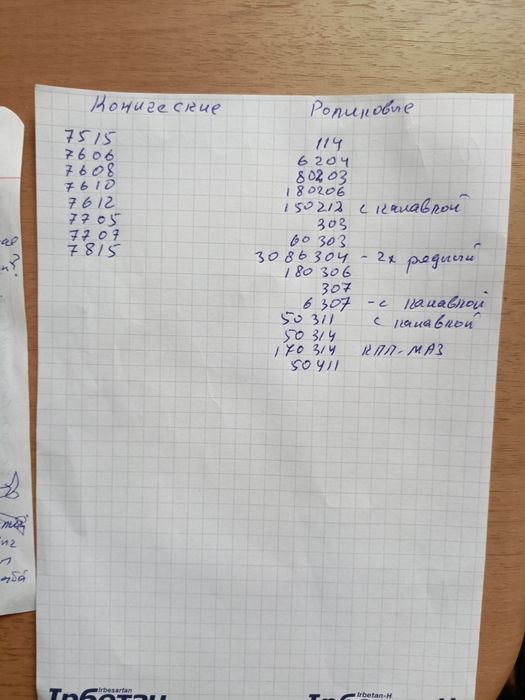 Конические
7515
7606
7608
7610
7612
7705
7707
7815
Роликовые
114
6204
80203
180206
150212 с канавкой
303
60303
3086304 - 2х рядный
180306
307
6307 - с канавкой
50311 с канавкой
50314
170314 КПП-МАЗ
50411
irbesartan
Ірбетан
Irbetan-H